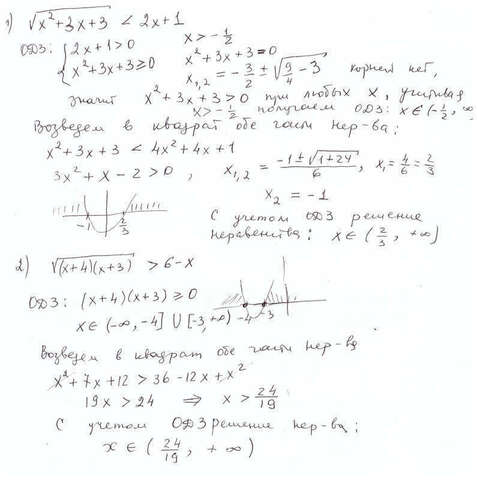 1) √(x²+3x+3) < 2x+1
ОДЗ: { 2x+1>0   x>-1/2
{ x²+3x+3≥0   x²+3x+3=0
x₁,₂ = -3/2 ± √(9/4 - 3)   корней нет,
значит x²+3x+3>0 при любых x, учитывая
x>-1/2 получаем ОДЗ: x∈(-1/2, ∞
Возведем в квадрат обе части нер-ва:
x²+3x+3 < 4x²+4x+1
3x²+x-2>0, x₁,₂ = (-1±√(1+24))/6, x₁=4/6=2/3
x₂=-1
-1   2/3
С учетом ОДЗ решение
неравенства: x∈(2/3, +∞)
2) √((x+4)(x+3)) > 6-x
ОДЗ: (x+4)(x+3)≥0
x∈(-∞,-4]∪[-3,+∞)   -4   -3
Возведем в квадрат обе части нер-ва
x²+7x+12>36-12x+x²
19x>24 ⇒ x>24/19
С учетом ОДЗ решение нер-ва:
x∈(24/19, +∞)